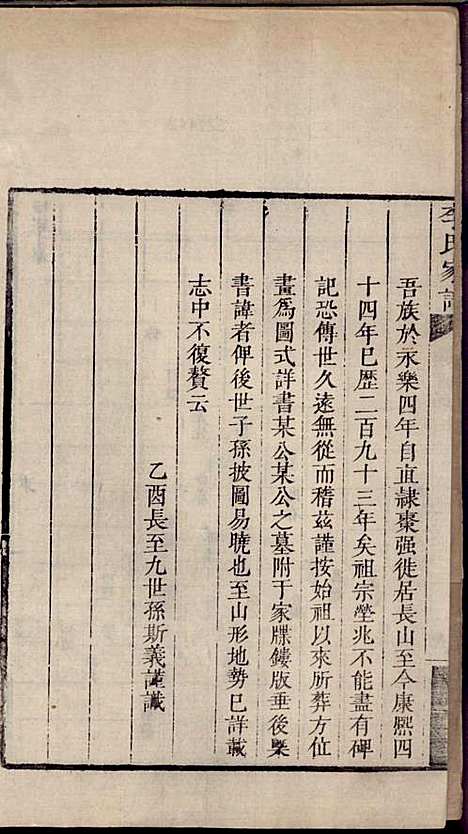 李氏家譜
吾族於永樂四年自直隷棗强徙居長山至今康熙四
十四年已歴二百九十三年矣祖宗塋兆不能盡有碑
記恐傳世久遠無從而稽玆謹按始祖以來所葬方位
畫爲圖式詳書某公某公之墓附于家牒鏤版垂後槩
書諱者俾後世子孫披圖易曉也至山形地勢已詳載
志中不復贅云
乙酉長至九世孫斯義謹識